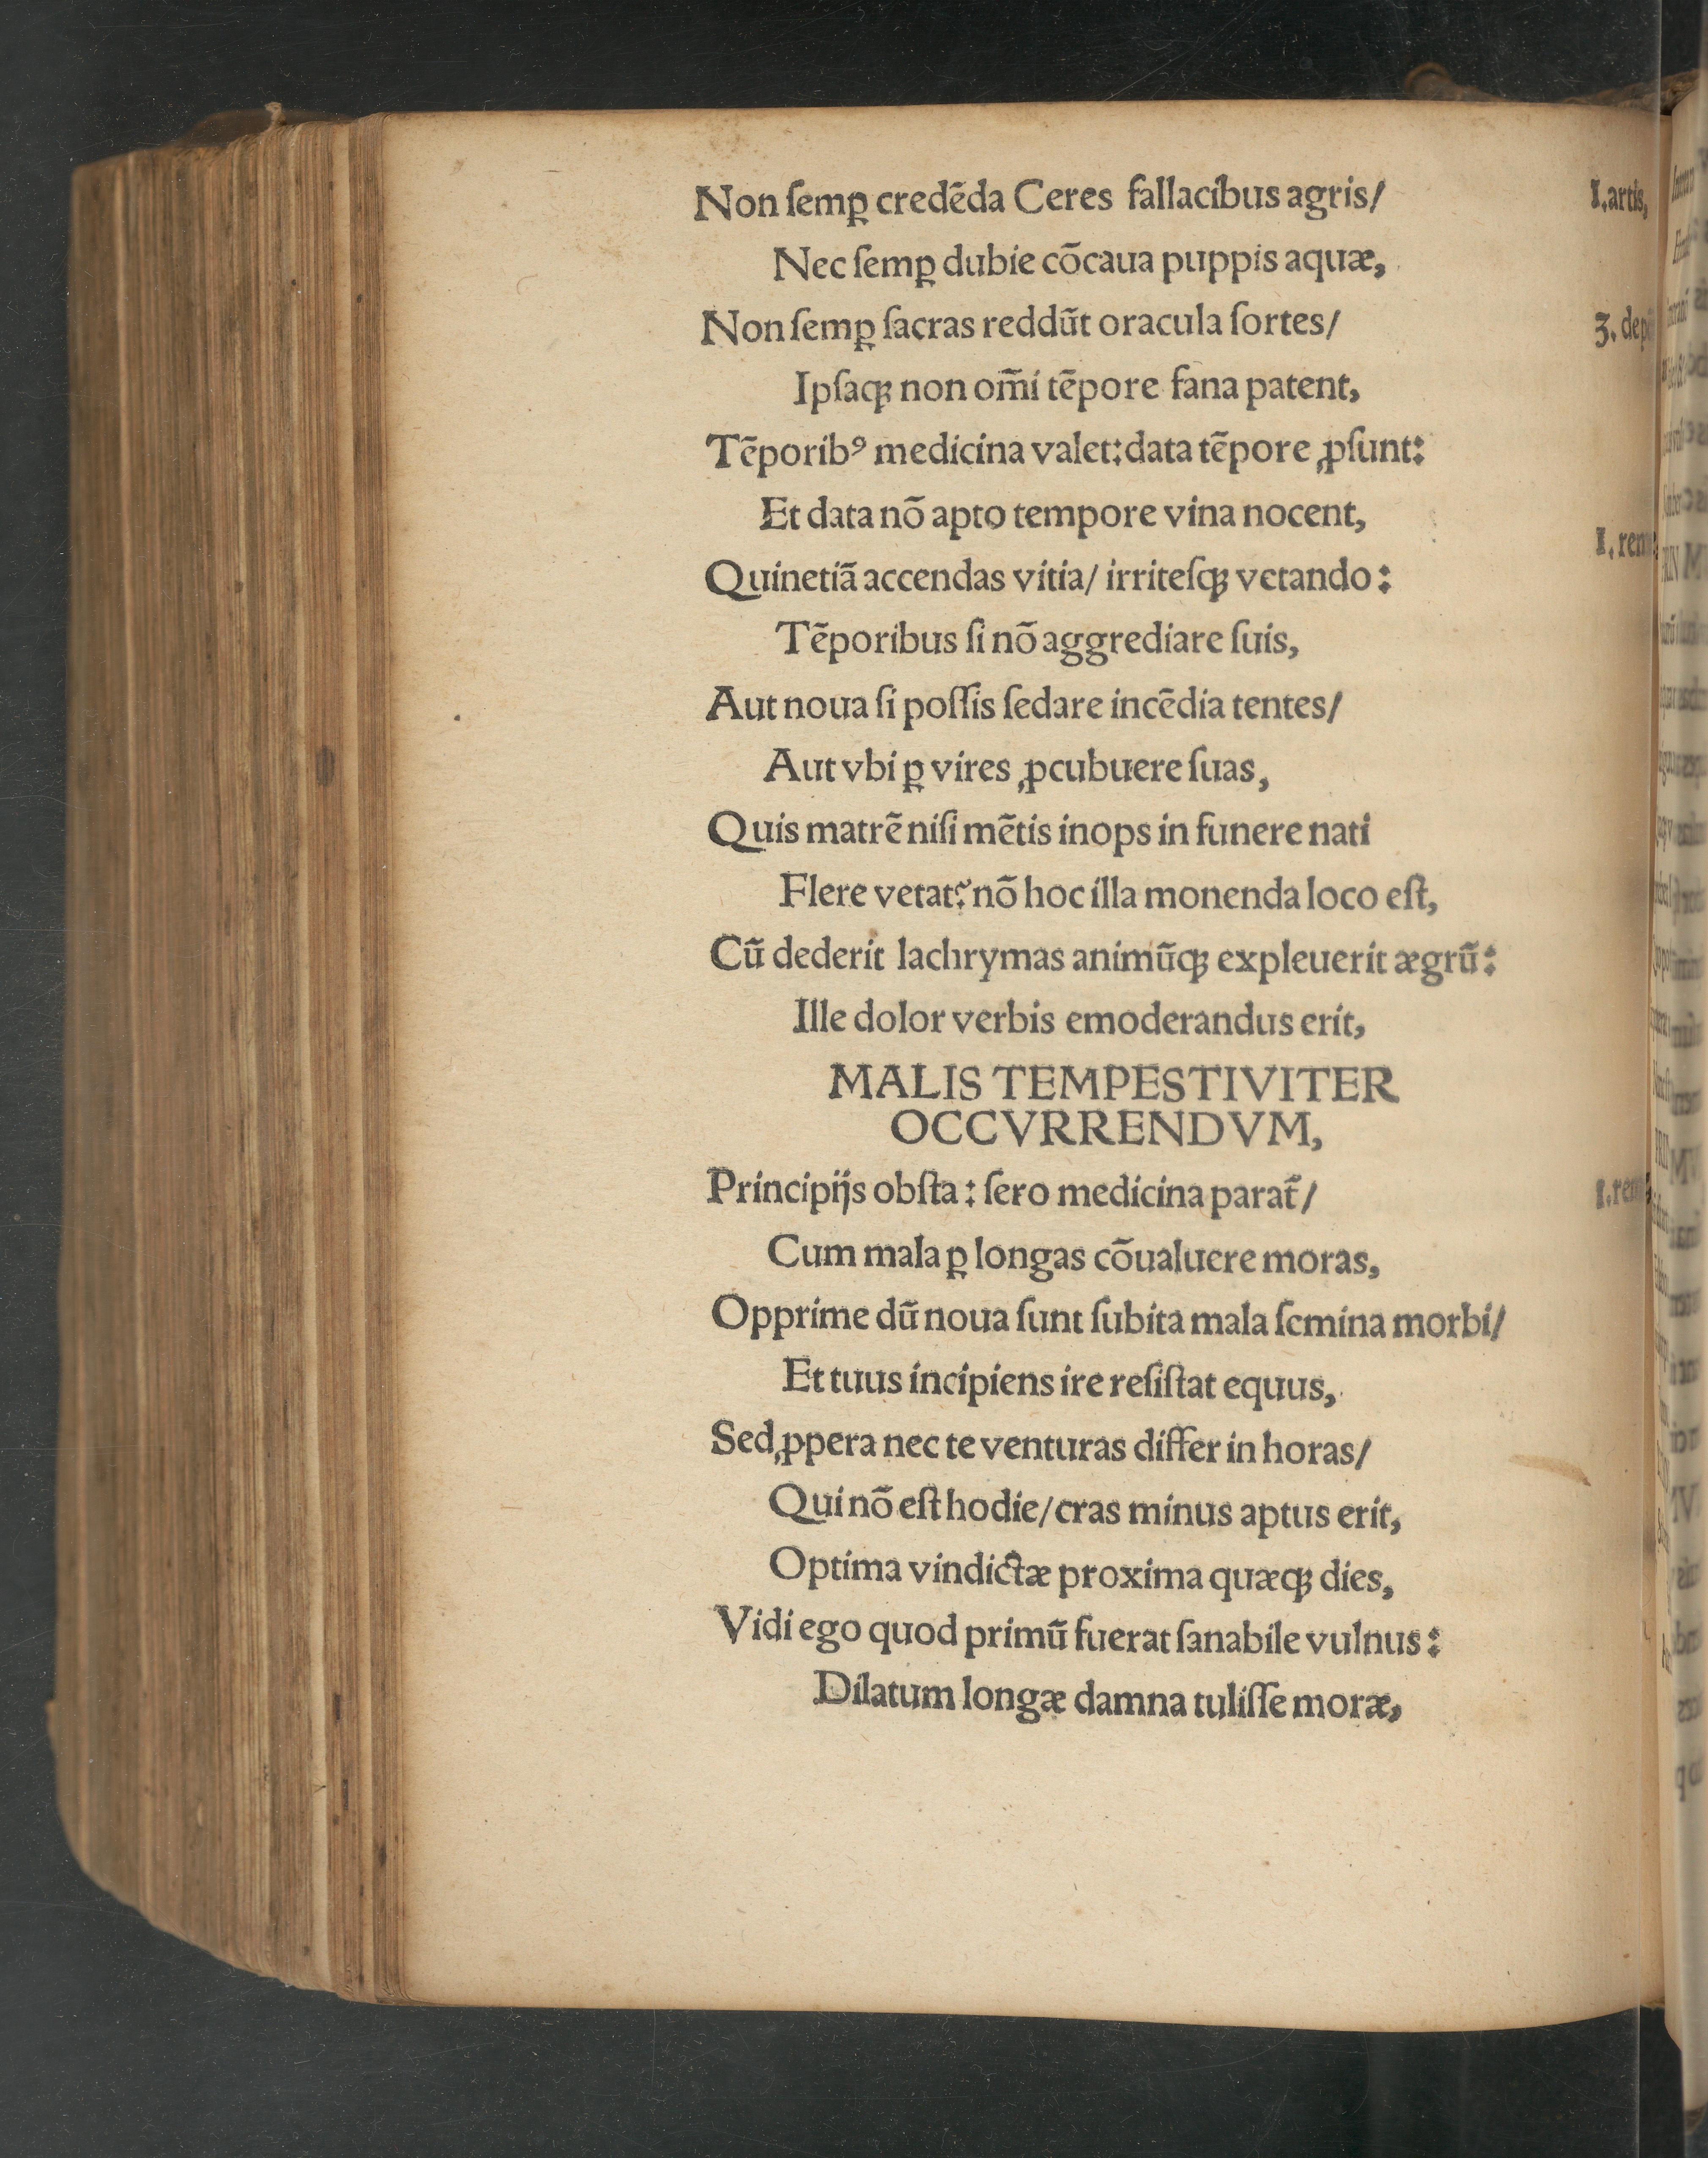 Non ſemꝑ credēda Ceres fallacibus agris/
Nec ſemꝑ dubie cōcaua puppis aquæ,
Non ſemꝑ ſacras reddūt oracula ſortes/
Ipſaqꝫ non om̄i tēpore fana patent,
Tēporibꝰ medicina valet: data tēpore ꝓſunt:
Et data nō apto tempore vina nocent,
Quinetiā accendas vitia/ irriteſqꝫ vetando:
Tēporibus ſi nō aggrediare ſuis,
Aut noua ſi poſſis ſedare incēdia tentes/
Aut vbi ꝑ vires ꝓcubuere ſuas,
Quis matrē niſi mētis inops in funere nati
Flere vetat? nō hoc illa monenda loco eſt,
Cū dederit lachrymas animūqꝫ expleuerit ægrū:
Ille dolor verbis emoderandus erit,
MALIS TEMPESTIVITER
OCCVRRENDVM,
Principijs obſta: ſero medicina parat̄/
Cum mala ꝑ longas cōualuere moras,
Opprime dū noua ſunt ſubita mala ſemina morbi/
Et tuus incipiens ire reſiſtat equus,
Sed ꝓpera nec te venturas differ in horas/
Qui nō eſt hodie/ cras minus aptus erit,
Optima vindictæ proxima quæqꝫ dies,
Vidi ego quod primū fuerat ſanabile vulnus:
Dilatum longæ damna tuliſſe moræ,
I. artis,
3. de
I. rem
I. rem